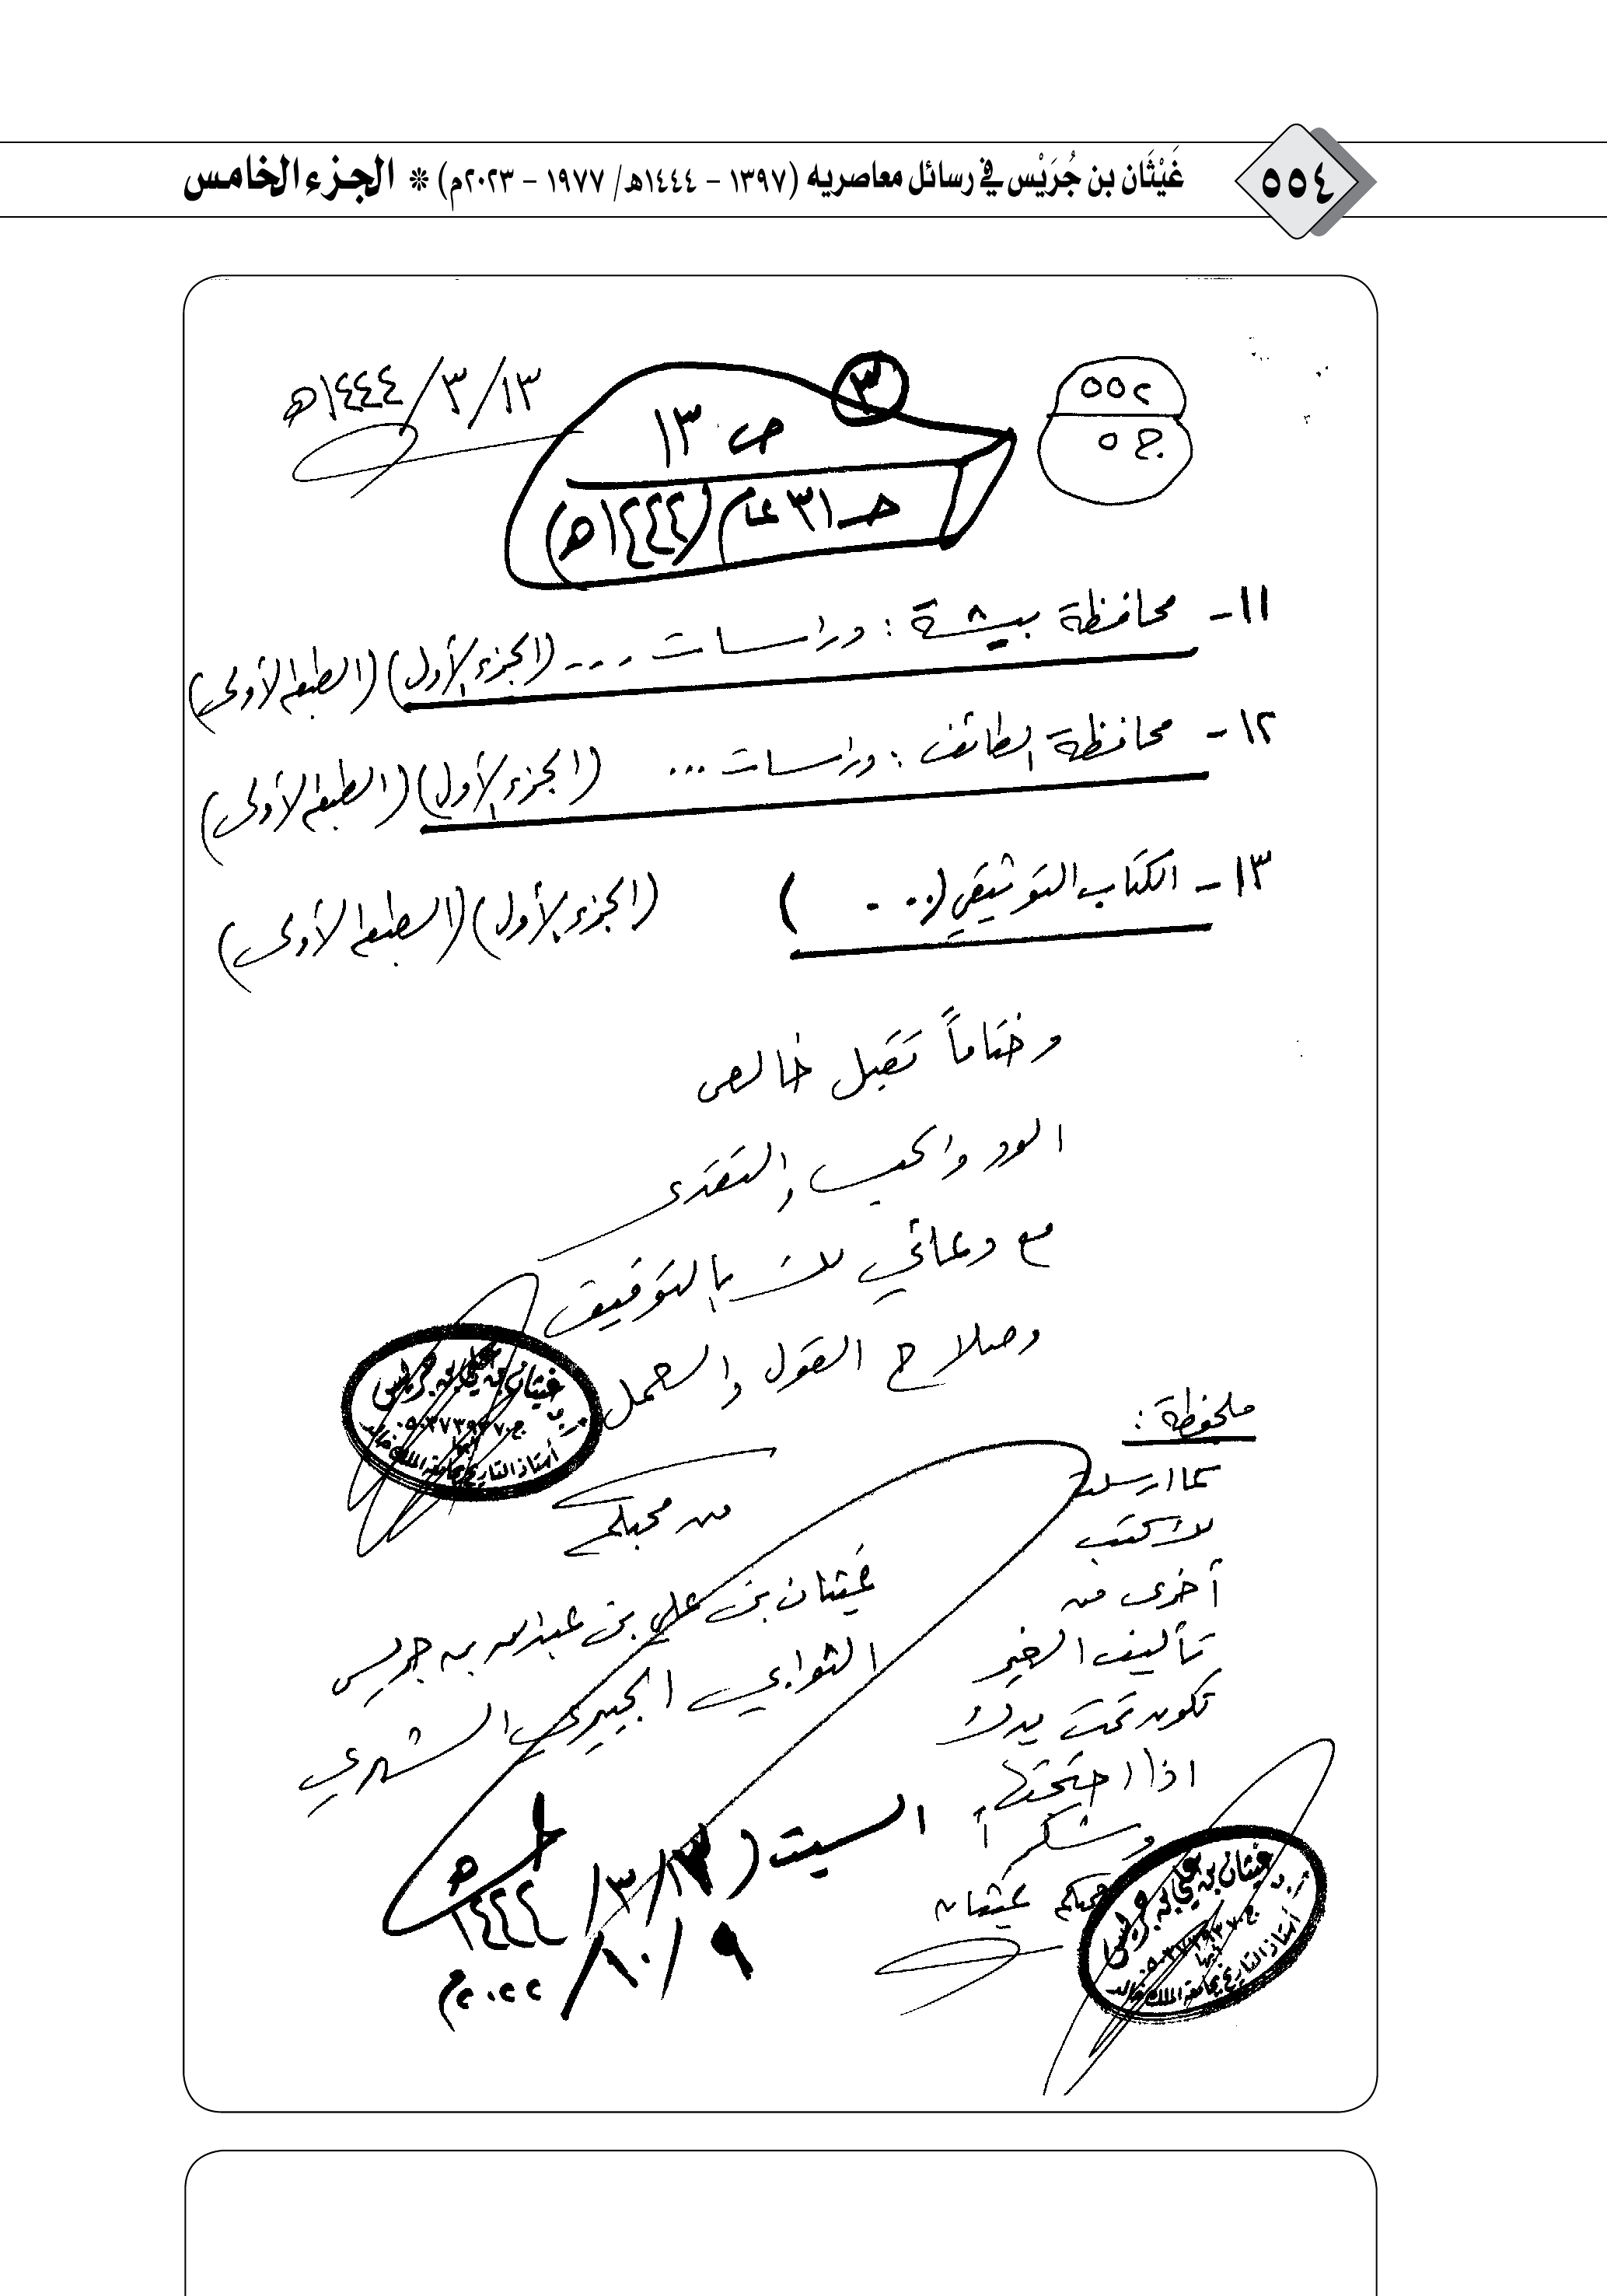 ٥٥٤
غَيْثَان بن جُرَيْس في رسائل معاصريه (١٣٩٧ – ١٤٤٤هـ/ ١٩٧٧ – ٢٠٢٣م) * الجزء الخامس
٥٥٢
ج ٥
٣
١٣/ ٣/ ١٤٤٤هـ
ص ١٣
حـ ٣١ عام (١٤٤٤هـ)
١١- محافظة بيشة : دراسات ... (الجزء الأول) (الطبعة الأولى)
١٢- محافظة الطائف : دراسات ... (الجزء الأول) (الطبعة الأولى)
١٣- الكتاب التوثيقي (... ) (الجزء الأول) (الطبعة الأولى)
وختاماً تقبل خالص
الود والحب والتقدير
مع دعائي لك بالتوفيق
وصلاح القول والعمل
غيثان بن علي بن جريس
أستاذ التاريخ بجامعة الملك خالد
من محبكم
غيثان بن علي بن عبدالله بن جريس
الثوابي الجبيري الشهري
السبت (١٣/ ٣/ ١٤٤٤هـ
٩/ ١٠/ ٢٠٢٢م
ملحوظة :
كما ارسلت
لك كتب
أخرى من
تأليف الغير
تكون تحت يدك
اذا احتجتها
وشكراً
محبكم غيثان
غيثان بن علي بن جريس
أبها
أستاذ التاريخ بجامعة الملك خالد